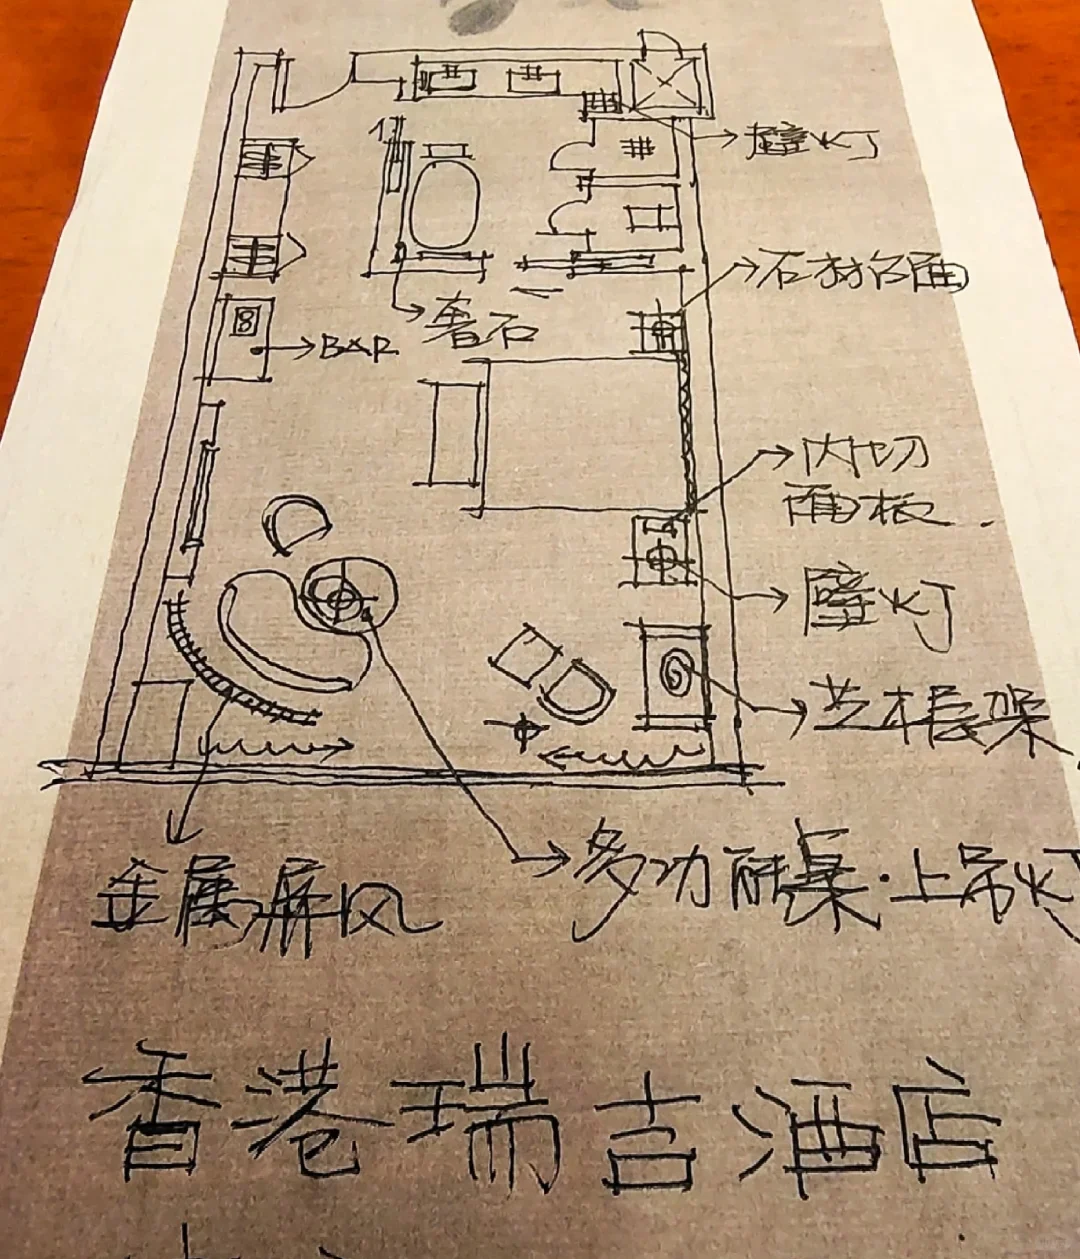 壁灯
石材台面
奢石
BAR
内切
面板.
壁灯
艺术层架
金属屏风
多功能桌·上吊灯
香港瑞吉酒店